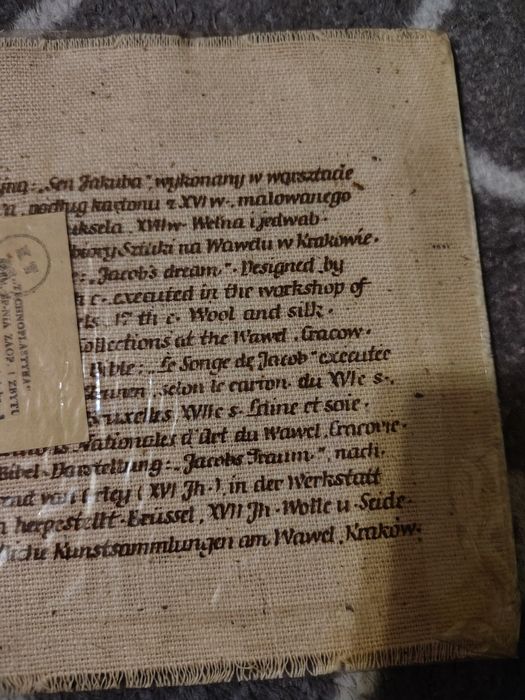 „Sen Jakuba", wykonany w warsztacie
podług kartonu z XVI w., malowanego
XVII w. Wełna i jedwab.
Zbiory Sztuki na Wawelu w Krakowie.
„Jacob's dream". Designed by
th c. executed in the workshop of
17 th c. Wool and silk.
Collections at the Wawel, Cracow.
Bible: „Le Songe de Jacob" executée
selon le carton du XVI e s.,
Bruxelles XVII e s. Laine et soie.
Nationales d'Art du Wawel, Cracovie.
Bibel-Darstellung: „Jacobs Traum", nach
(XVI Jh.), in der Werkstatt
hergestellt. Brüssel, XVII Jh. Wolle u. Seide.
Kunstsammlungen am Wawel, Kraków.
"TECHNOPLASTYKA"
ZAOP. I ZBYTU